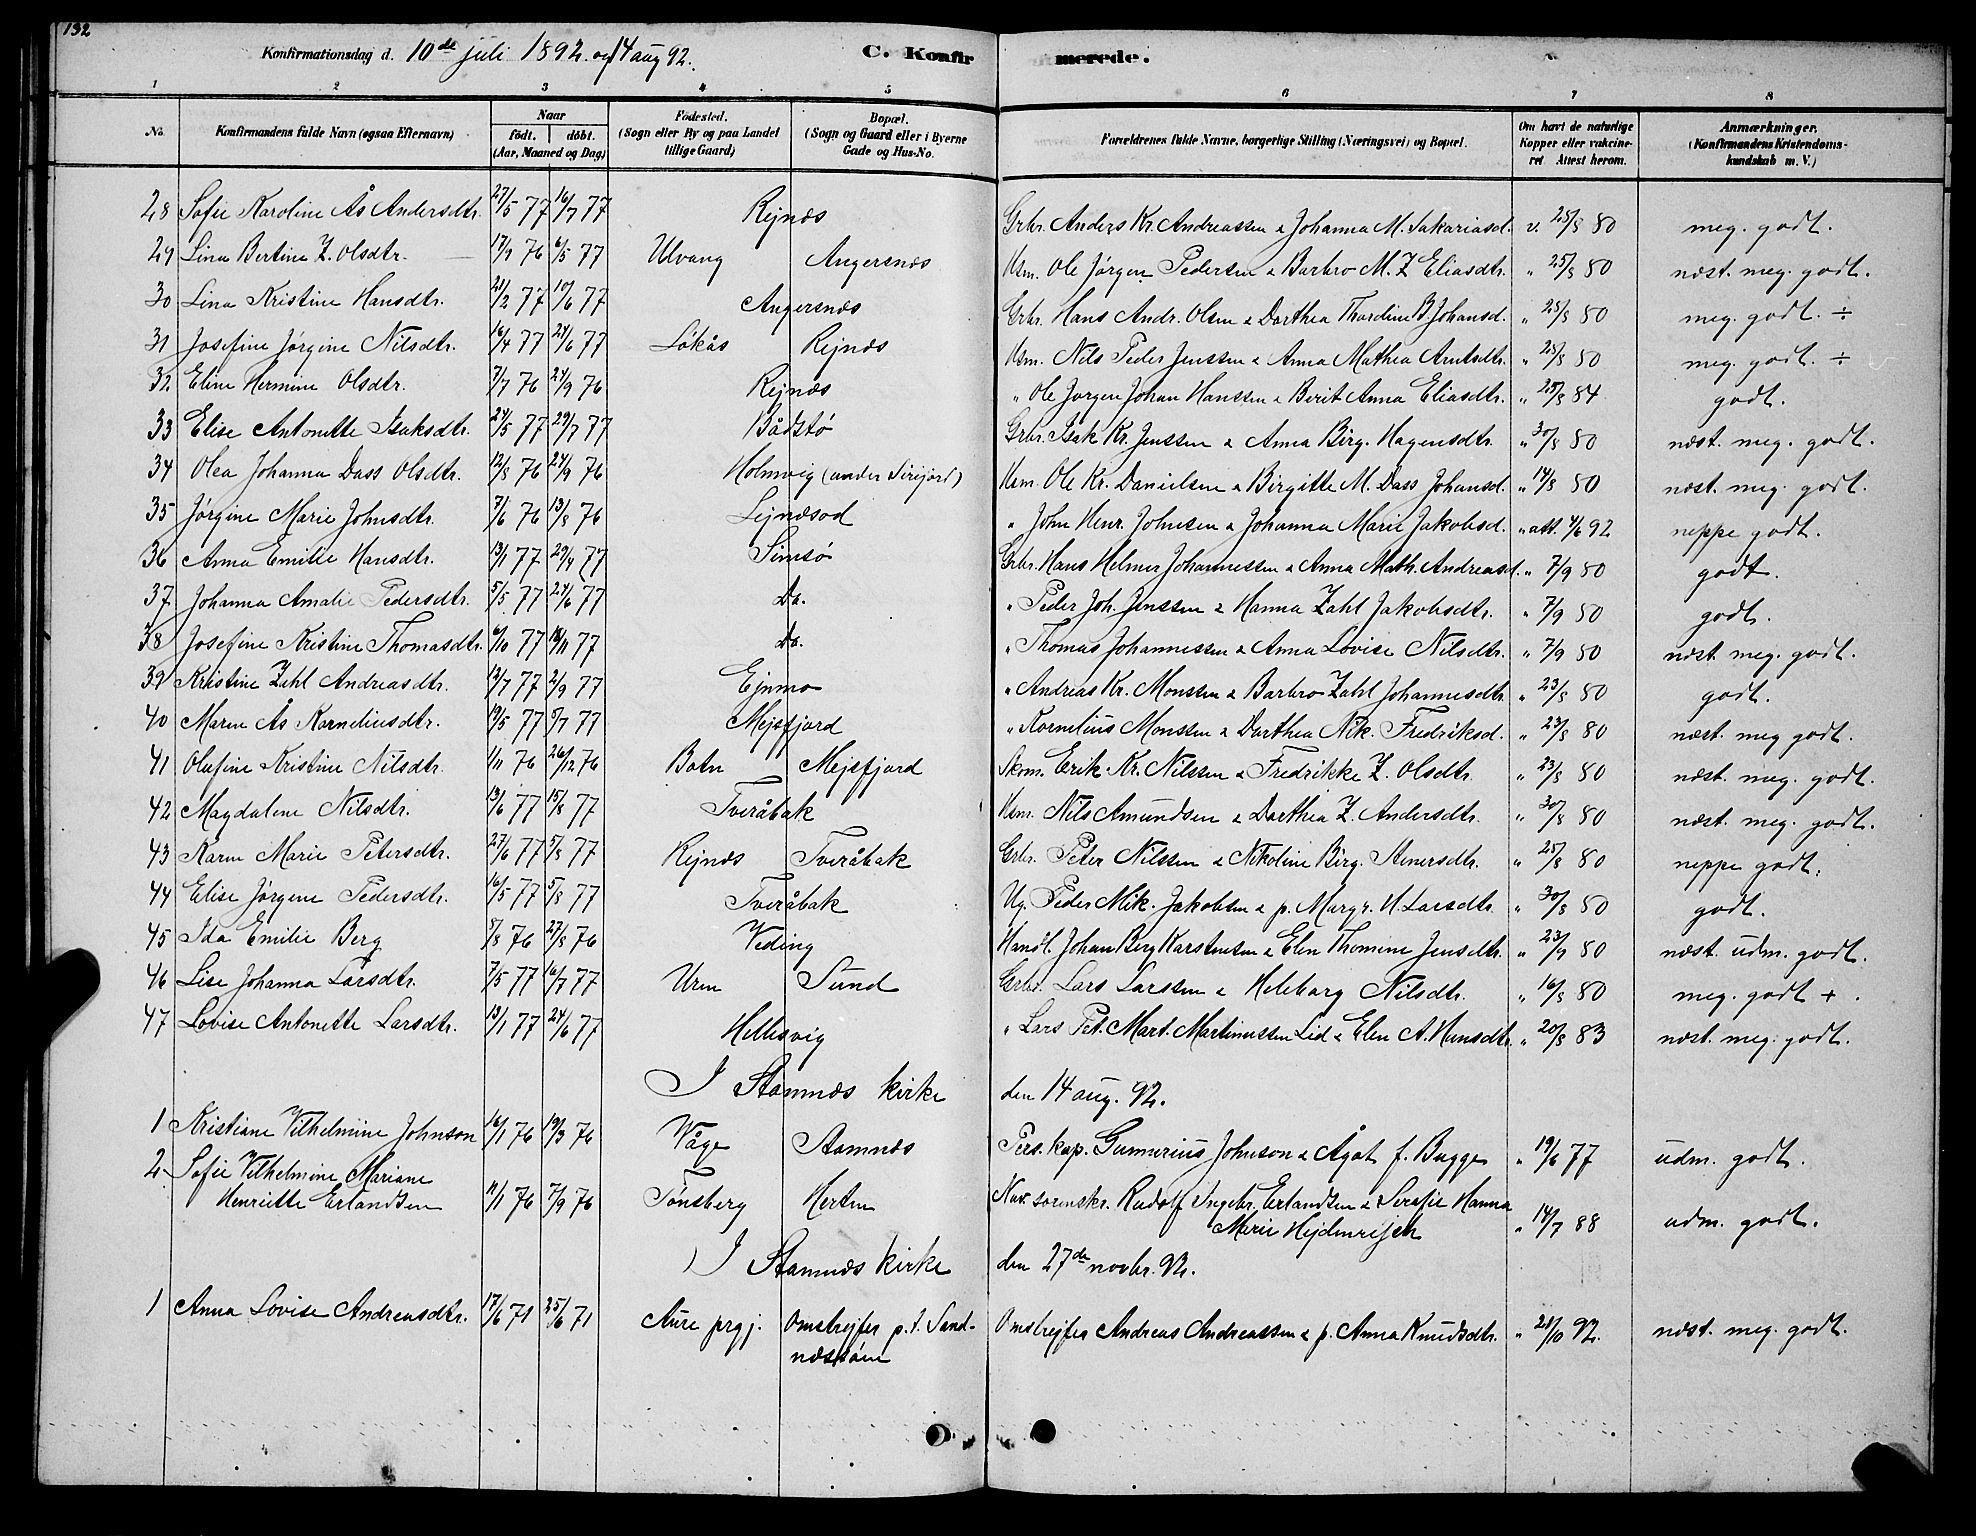 132
Konfirmationsdag d. 10de juli 1892 og 14 aug 92. C. Konfirmerede.
1 2 3 4 5 6 7 8
No. Konfirmandens fulde Navn (ogsaa Efternavn) Naar født. døbt. (Aar, Maaned og Dag) Fødested. (Sogn eller By og paa Landet tillige Gaard) Bopæl. (Sogn og Gaard eller i Byerne Gade og Hus-No. Forældrenes fulde Navne, borgerlige Stilling (Næringsvei) og Bopæl. Om havt de naturlige Kopper eller vakcineret. Attest herom. Anmærkninger. (Konfirmandens Kristendomskundskab m. V.)
28 Sofie Karoline Ås Andersdtr. 27/5 77 16/7 77 Rejnæs Grbr. Anders Kr. Andreassen & Johanna M. Sakariasd. v. 25/8 80 meg. godt.
29 Lina Bertine Z. Olsdtr. 17/9 76 6/5 77 Ulvang Angersnæs Usm. Ole Jørgen Pedersen & Barbro M. Z Eliasdtr. " 25/8 80 næst. meg. godt.
30 Lina Kristine Hansdtr. 21/2 77 10/6 77 Angersnæs Grbr. Hans Andr. Olsen & Dorthea Thordine B. Johansd. " 25/8 80 meg. godt. ÷
31 Josefine Jørgine Nilsdtr. 16/4 77 24/6 77 Løkås Rejnæs Usm. Nils Peder Jenssen & Anna Mathea Arntsdtr. " 25/8 80 meg. godt ÷
32 Eline Hermine Olsdtr. 7/7 76 24/9 76 Rejnæs " Ole Jørgen Johan Hanssen & Berit Anna Eliasdtr. " 25/8 84 godt.
33 Elise Antonette Isaksdtr. 24/5 77 29/7 77 Bådstø Grbr. Isak Kr. Jenssen & Anna Birg. Hagensdtr. " 30/8 80 næst. meg. godt.
34 Olea Johanna Dass Olsdtr. 12/8 76 24/9 76 Holmvig (under Sirijord) Usm. Ole Kr. Danielsen & Birgitte M. Dass Johansd. " 14/8 80 næst. meg. godt.
35 Jørgine Marie Johnsdtr. 7/6 76 13/8 76 Lejnæsod " John Henr. Johnsen & Johanna Marie Jakobsd. " att. 4/6 92 neppe godt.
36 Anna Emilie Hansdtr. 13/1 77 29/4 77 Simsø Grbr. Hans Helmer Johannessen & Anna Math. Andreasd. " 7/9 80 godt.
37 Johanna Amalie Pedersdtr. 5/5 77 24/6 77 Do. " Peder Joh. Jenssen & Hanna Zahl Jakobsdtr. " 7/9 80 godt.
38 Josefine Kristine Thomasdtr. 6/10 77 18/11 77 Do. " Thomas Johannessen & Anna Lovise Nilsdtr. " 7/9 80 næst. meg. godt.
39 Kristine Zahl Andreasdtr. 12/7 77 2/9 77 Ejnmo " Andreas Kr. Monssen & Barbro Zahl Johannesdtr " 23/8 80 godt.
40 Maren As Kornelinsdtr. 19/5 77 5/7 77 Mejsfjord " Kornelius Monssen & Dorthea Nik. Fredriksd. " 23/8 80 næst. meg godt.
41 Olufine Kristine Nilsdtr. 1/11 76 26/12 76 Botn Mejsfjord Skom. Erik Kr. Nilssen & Fredrikke Z. Olsdtr. " 23/8 80 næst. meg. godt.
42 Magdalene Nilsdtr. 13/6 77 15/8 77 Tveråbak Usm. Nils Amundsen & Dorthea Z. Andersdtr. " 30/8 80 næst. meg. godt.
43 Karen Marie Petersdtr. 27/6 77 5/8 77 Rejnæs Tveråbak Grbr. Peter Nilssen & Nikoline Birg. Stenersdtr. " 25/8 80 neppe godt.
44 Elise Jørgene Pedersdtr. 16/5 77 5/8 77 Tveråbak Ug. Peder Mik. Jakobsen & p. Margr. M. Larsdtr. " 30/8 80 godt.
45 Ida Emilie Berg 3/8 76 27/8 76 Veding Handl. Johan Berg Karstensen & Elen Thomine Jensdtr. " 23/9 80 næst. udm. godt.
46 Lise Johanna Larsdtr. 7/5 77 16/7 77 Uren Sund Grbr. Lars Larssen & Heleborg Nilsdtr. " 16/8 80 meg. godt +.
47 Lovise Antonette Larsdtr. 13/1 77 24/6 77 Hellesvig " Lars Pet. Mart. Martinussen Lid & Elen A. Hansdtr. " 20/8 83 næst. meg. godt.
I Stamnæs kirke den 14 aug. 92.
1 Kristiane Vilhelmine Johnson 16/1 76 19/3 76 Våge Stamnæs Pers. kap. Gunnerius Johnson & Ågot f. Bugge " 19/6 77 udm. godt.
2 Sofie Vilhelmine Mariane
Henriette Erlandsen 11/1 76 7/9 76 Tønsberg Herten Nuv. sorenskr. Rudolf Ingebr. Erlandsen & Serafie Hanna
Marie Hejdenrisch " 14/7 88 udm. godt.
I Stamnæs kirke den 27de novbr. 92.
1 Anna Lovise Andreasdtr. 17/6 71 25/6 71 Aure prgj. Omstrejfer p. t. Sand- Omstrejfer Andreas Andreassen & p. Anna Knudsdtr. " 21/10 92. næst. meg. godt.
næssøen